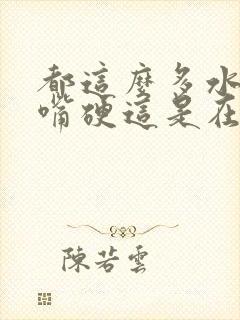 都這麼多水
嘴硬這是在
陳若雲